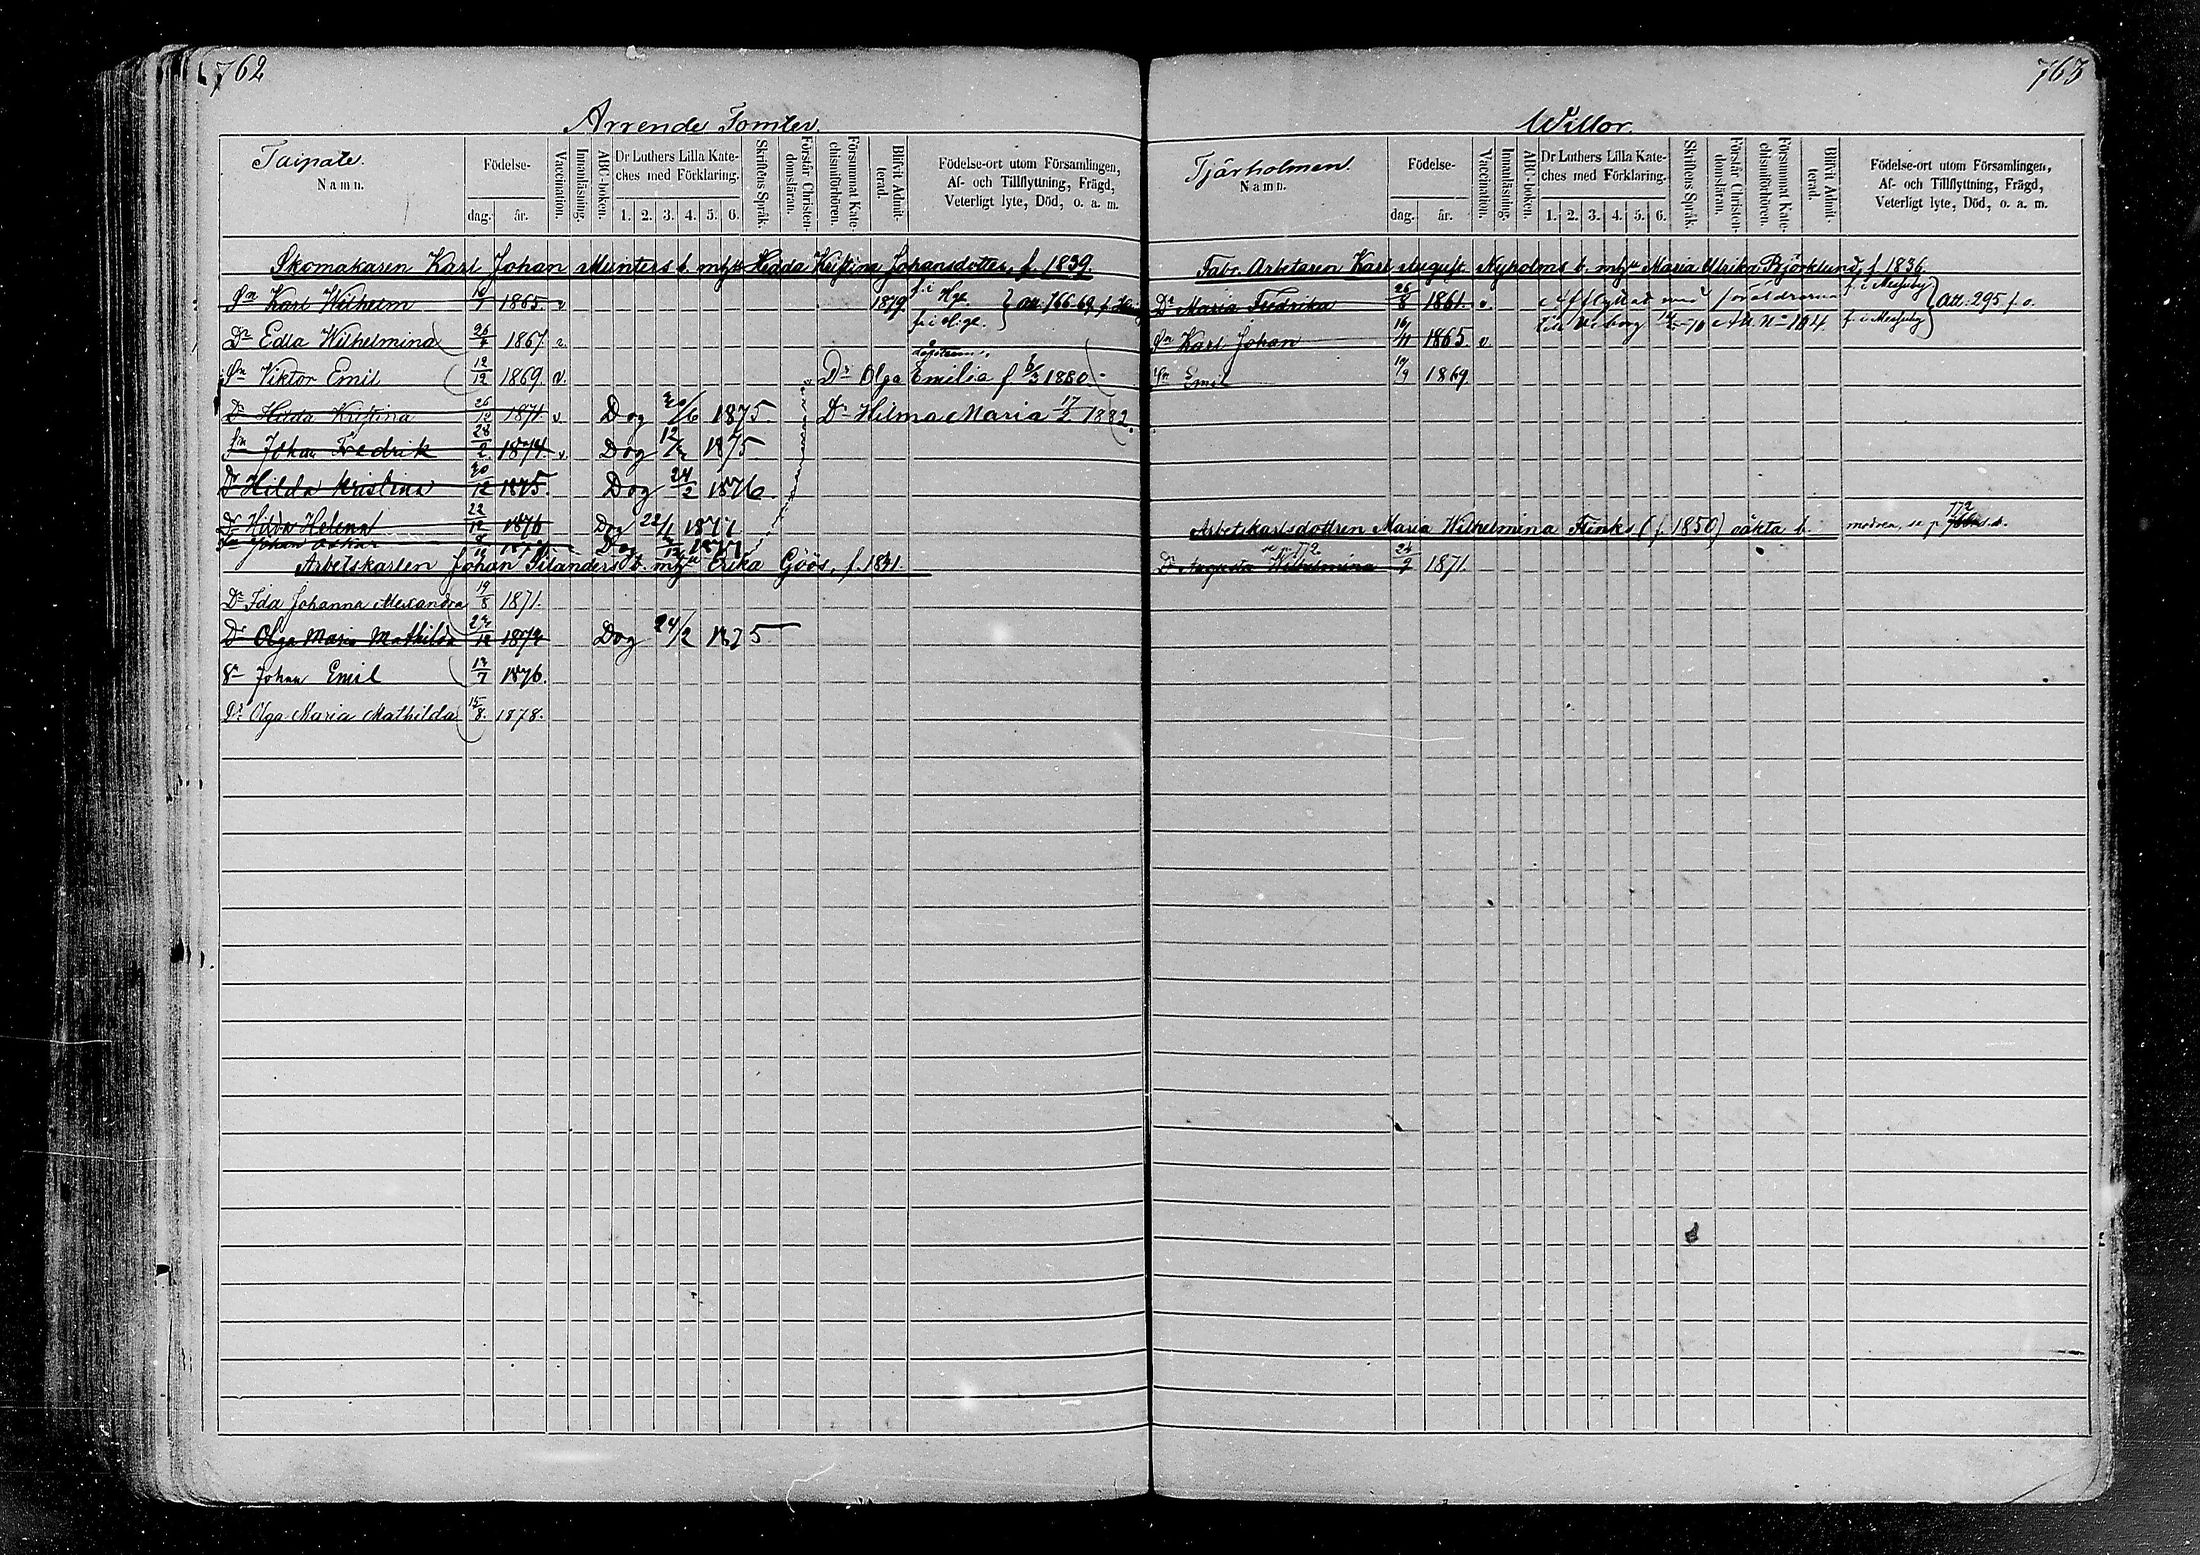 762
Arrende Tomter.
Taipale.
Namn.
Födelse-
dag. år.
Vaccination.
Innanläsning.
ABC-boken.
Dr Luthers Lilla Kate-
ches med Förklaring.
1. 2. 3. 4. 5. 6.
Skriftens Språk.
Förstår Christen-
domsläran.
Försummat Kate-
chismiförhören.
Blifvit Admit-
terad.
Födelse-ort utom Församlingen,
Af- och Tillflyttning, Frägd,
Veterligt lyte, Död, o. a. m.
Skomakaren Karl Johan Munters b. m. hu Hedda Kristina Johansdotter, f. 1839.
Sn Karl Wilhelm 1865 v 1879 f. i Hge.
Dr Edla Wilhelmina 26/4 1867. v.
Sn Viktor Emil 12/12 1869. v. Dr Olga Emilia f 6/3 1880
Dr Hilda Kristina 26/12 1871. v Dog 20/6 1875. Dr Hilma Maria 17/2 1882.
Sn Johan Fredrik 28/2 1874. v Dog 1875.
Dr Hilda Kristina 20/12 1875. Dog 24/2 1876.
Dr Hilda Helena 22/12 1876 Dog 22/1 1877
Sn Johan Oskar 1877 Dog 1877
Arbetskarlen Johan Silanders b. m. hu Erika Göös, f. 1831.
Dr Ida Johanna Alexandra 19/8 1871.
Dr Olga Maria Mathilda 1872 Dog 24/2 1875
Sn Johan Emil 1876.
Dr Olga Maria Mathilda 15/8. 1878.
763
Willor.
Tjärholmen.
Namn.
Födelse-
dag. år.
Vaccination.
Innanläsning.
ABC-boken.
Dr Luthers Lilla Kate-
ches med Förklaring.
1. 2. 3. 4. 5. 6.
Skriftens Språk.
Förstår Christen-
domsläran.
Försummat Kate-
chismiförhören.
Blifvit Admit-
terad.
Födelse-ort utom Församlingen,
Af- och Tillflyttning, Frägd,
Veterligt lyte, Död, o. a. m.
Fabr. Arbetaren Karl August Nyholms b. m. hu Maria Ulrika Björklund, f. 1836
Dr Maria Fredrika 26/8 1861. v Afflyttad med föräldrarna Att. 295 f. o.
Sn Karl Johan 1865. v till Viborg
Sn Emil 19/9 1869
Arbetskarlsdottren Maria Wilhelmina Flinks (f. 1850) oäkta b. modren, se p 172
Dr Augusta Wilhelmina 24/9 1871.